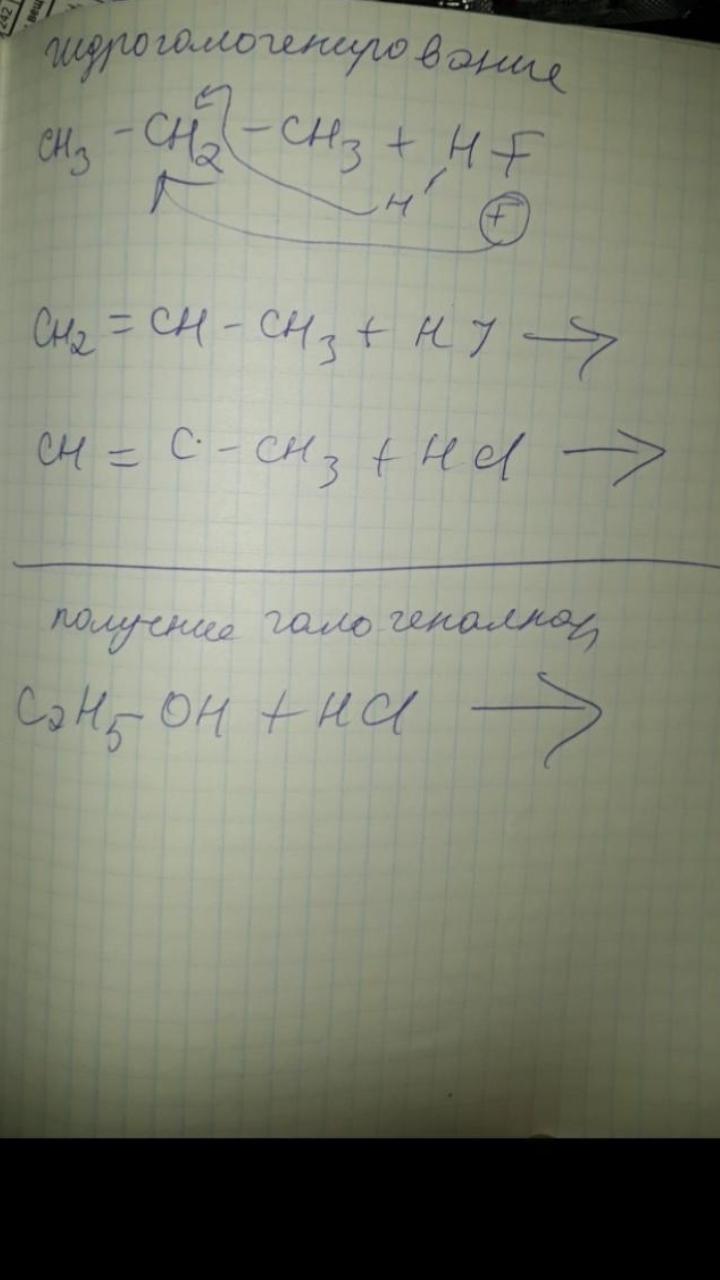 242
вещ
гидрогалогенирование
CH₃ – CH₂ – CH₃ + H F
H F
CH₂ = CH – CH₃ + H J →
CH = C – CH₃ + HCl →
получение галогеналкан
C₂H₅ OH + HCl →